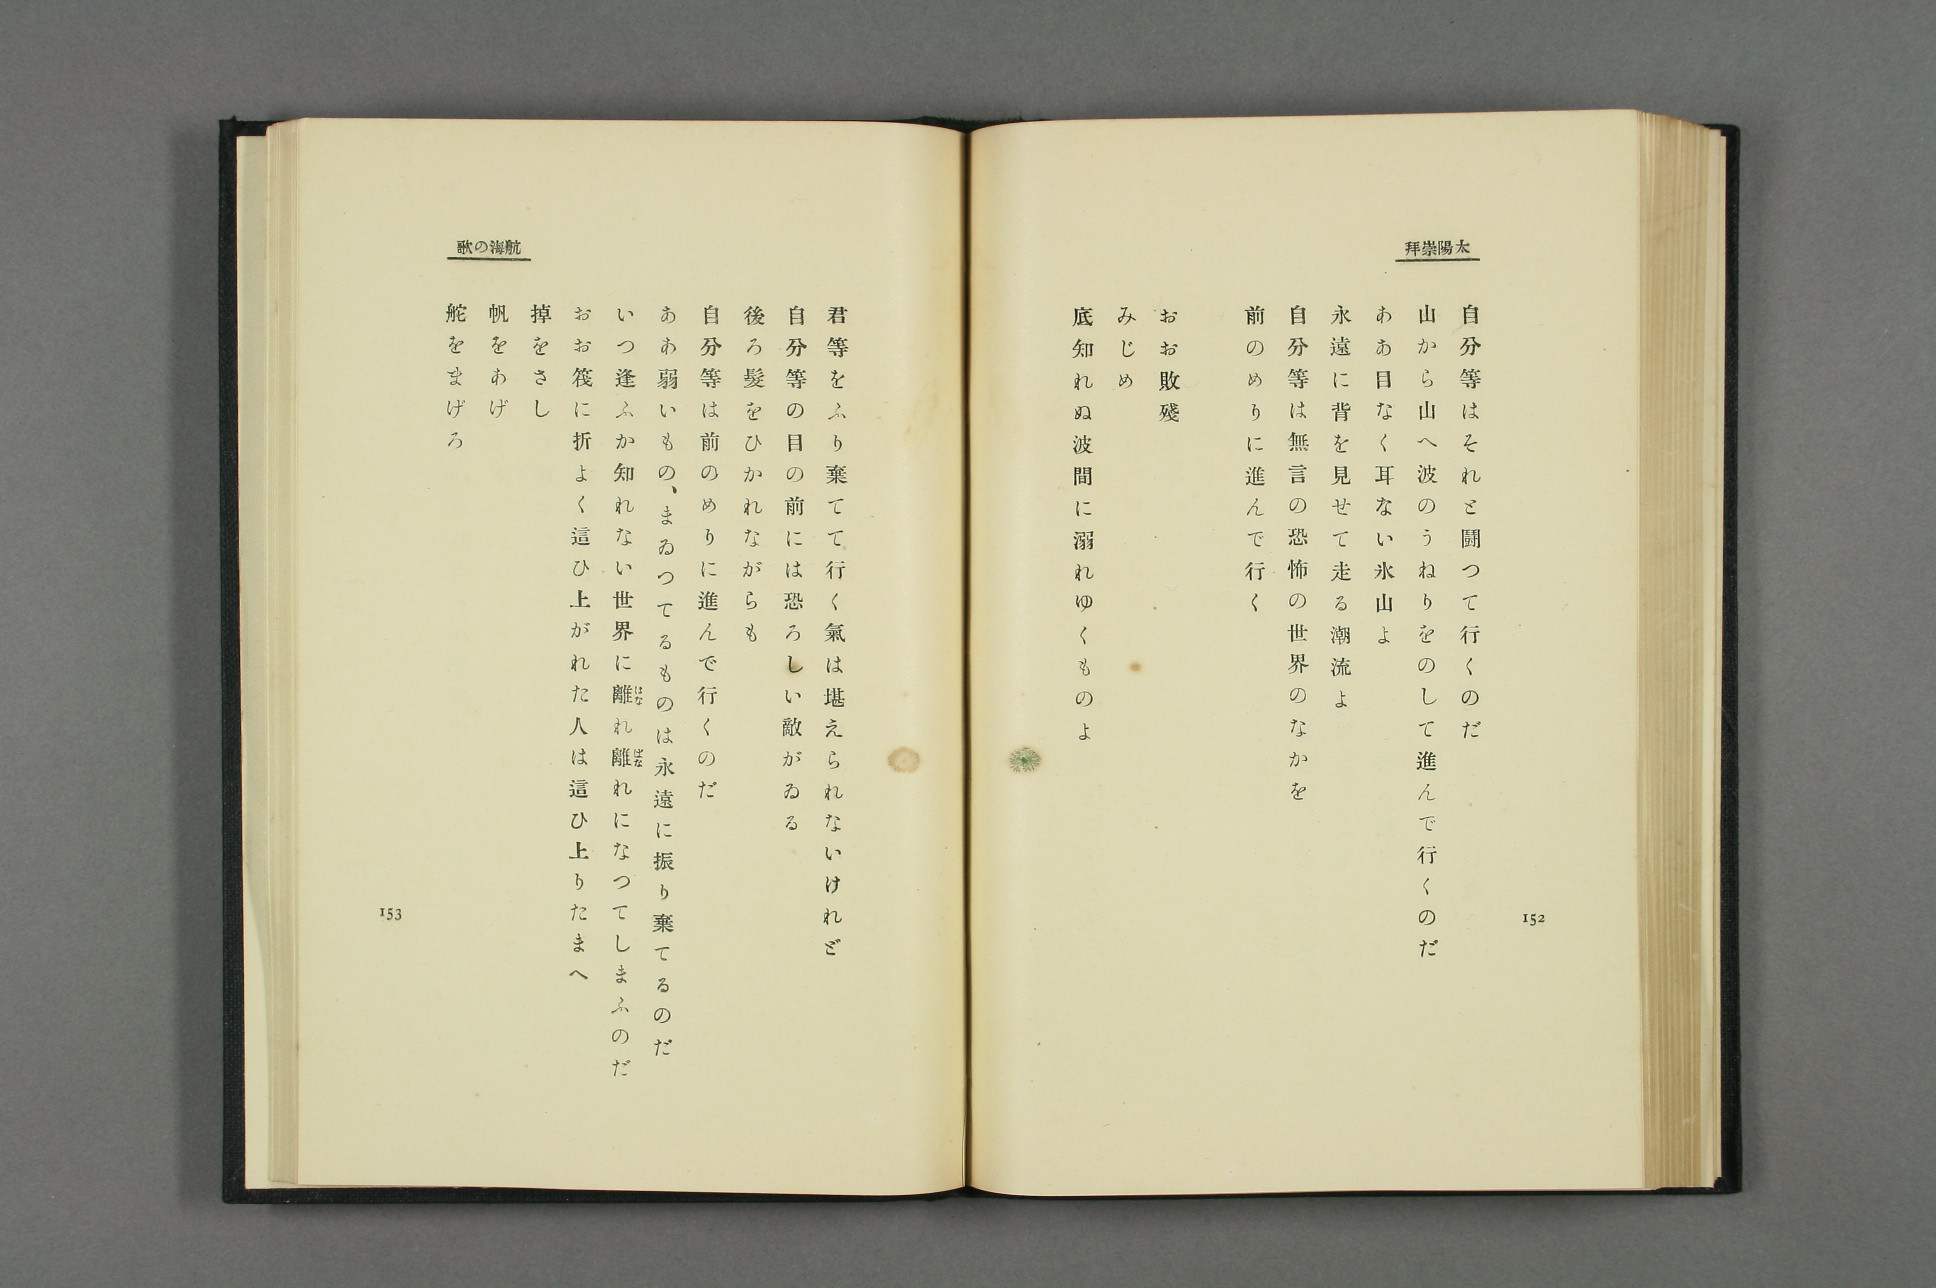 太陽崇拜
自分等はそれと鬪つて行くのだ
山から山へ波のうねりをのして進んで行くのだ
ああ目なく耳ない氷山よ
永遠に背を見せて走る潮流よ
自分等は無言の恐怖の世界のなかを
前のめりに進んで行く
おお敗殘
みじめ
底知れぬ波間に溺れゆくものよ
152
航海の歌
君等をふり棄てて行く氣は堪えられないけれど
自分等の目の前には恐ろしい敵がゐる
後ろ髮をひかれながらも
自分等は前のめりに進んで行くのだ
ああ弱いもの、まゐつてるものは永遠に振り棄てるのだ
いつ逢ふか知れない世界に離(はな)れ離(ばな)れになつてしまふのだ
おお筏に折よく這ひ上がれた人は這ひ上りたまへ
掉をさし
帆をあげ
舵をまげろ
153